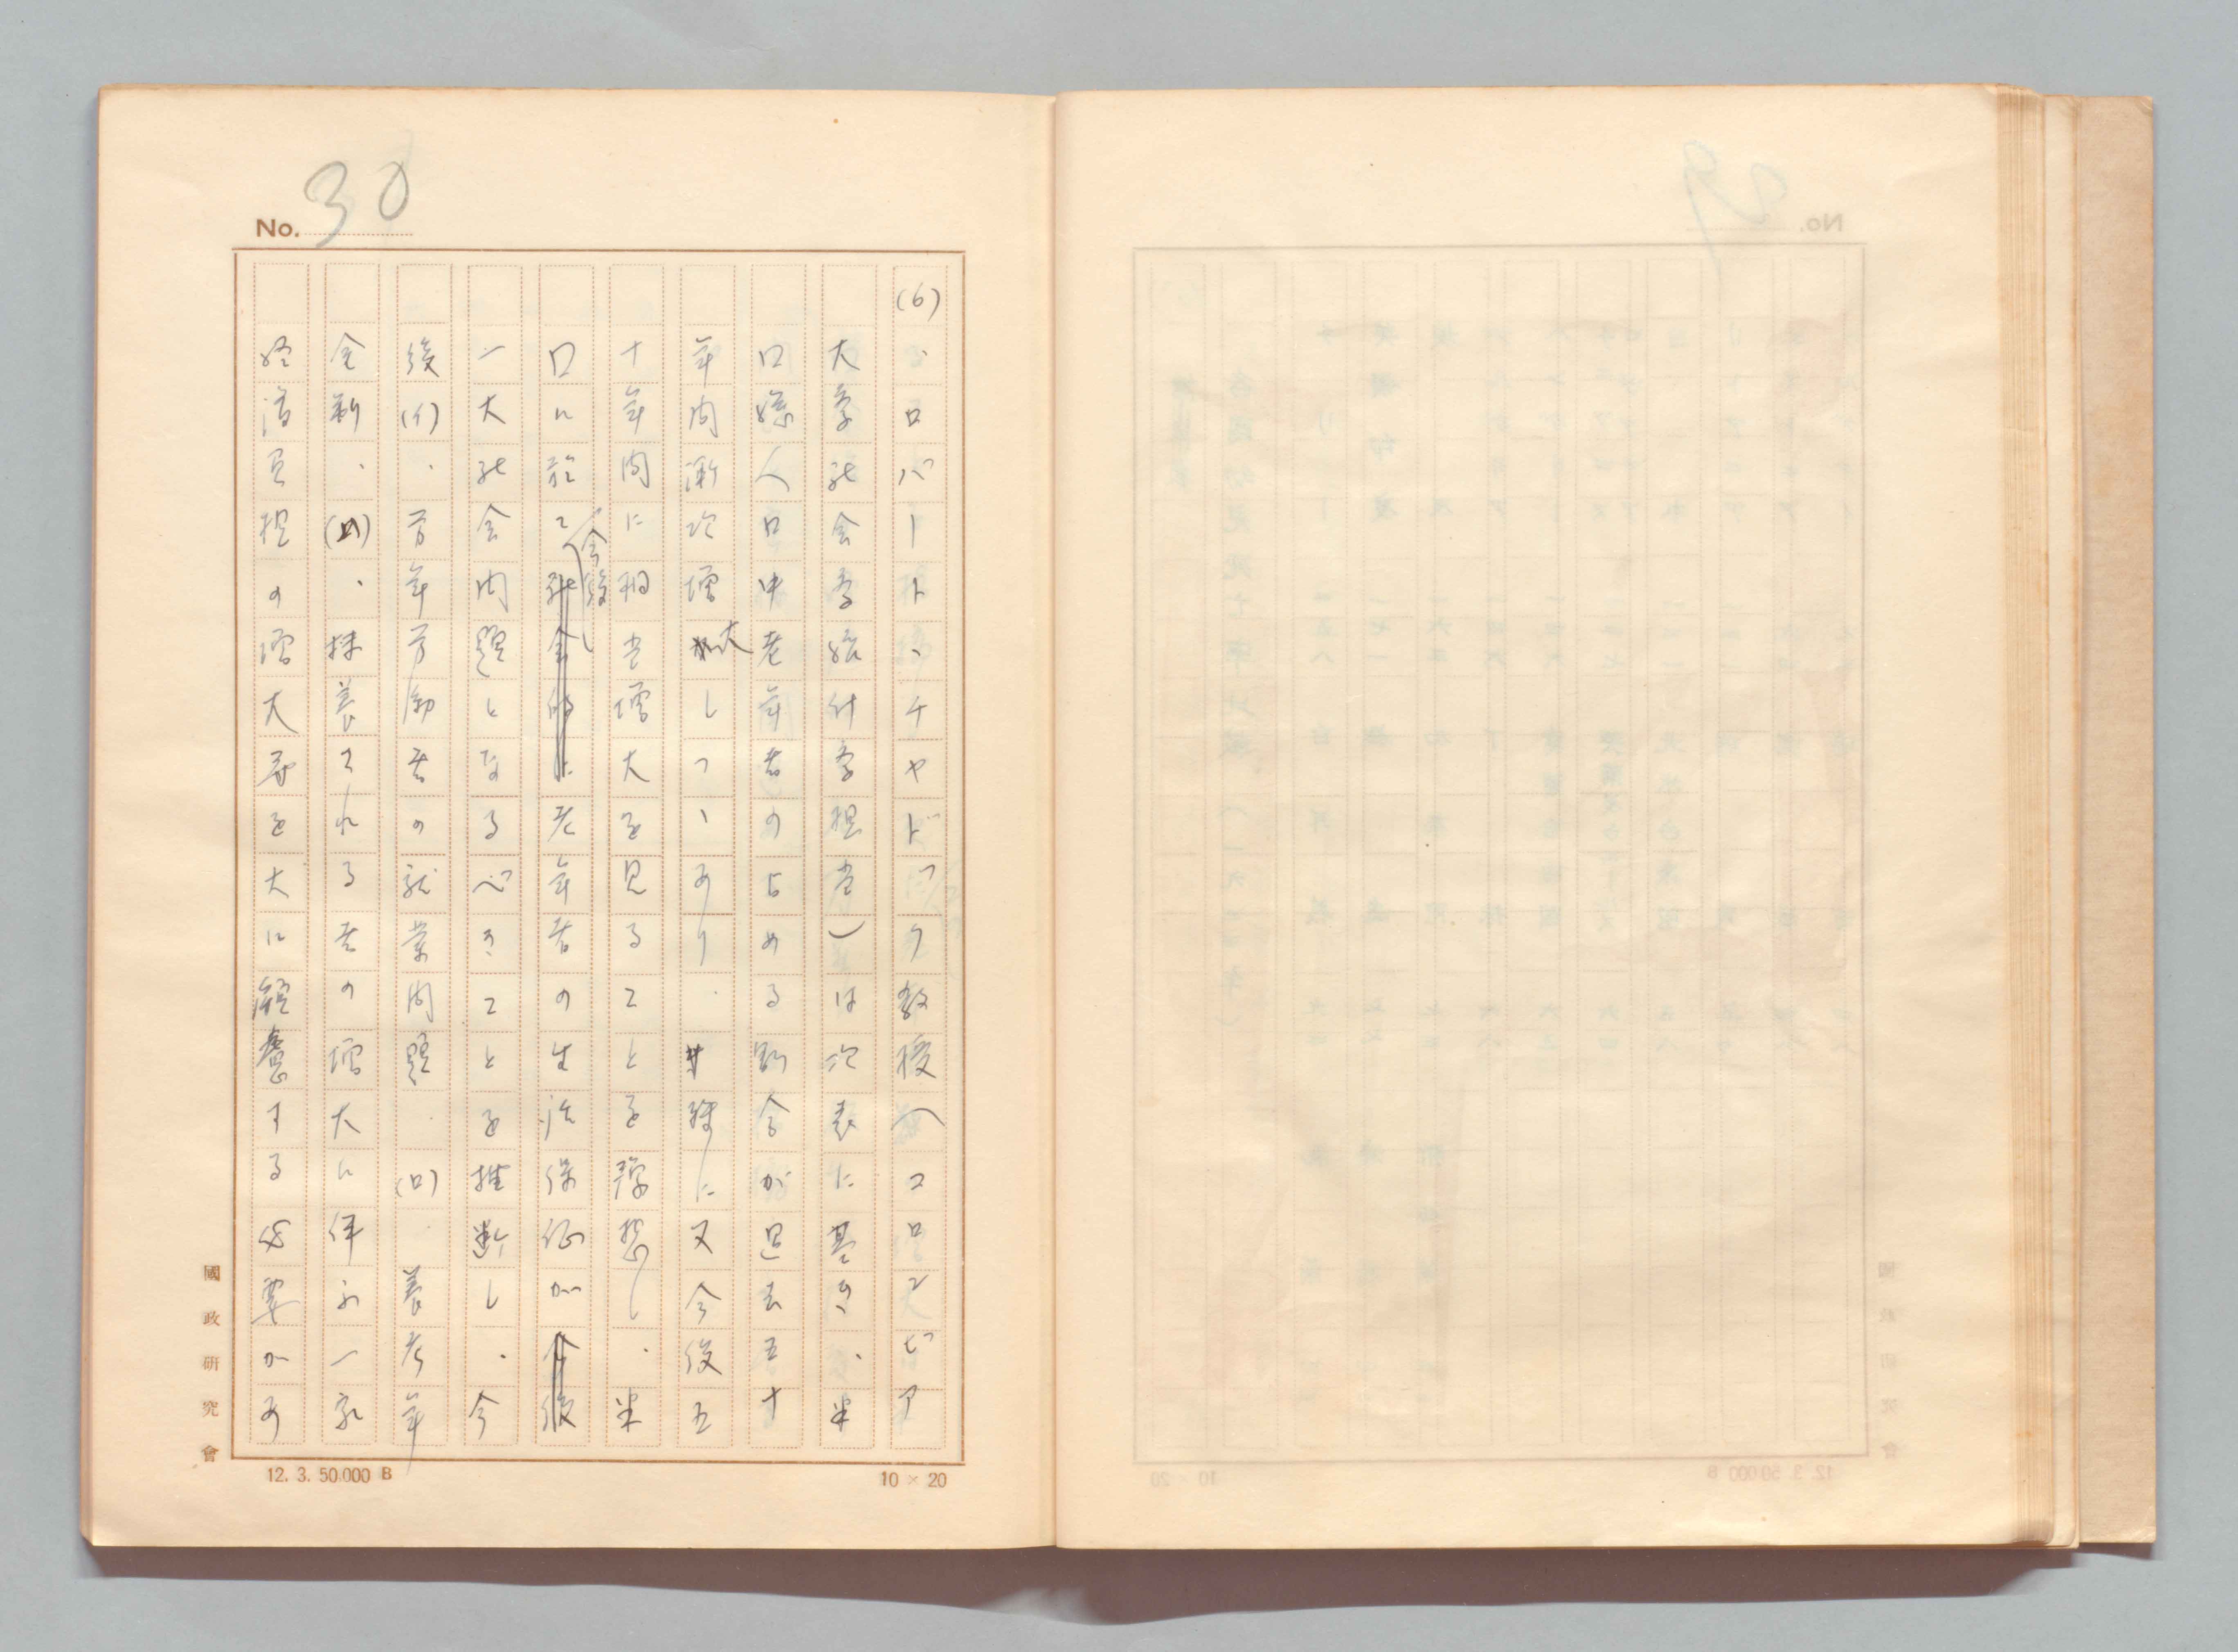 No. 30
(6)、ロバート、チヤドツク教授(コロンビア
大学社会学統計学担当)は次表に基き、米
口総人口中老年者の占める割合が過去五十
年間漸次増大しつゝあり、殊に又今後五
十年間に相当増大を見ることを予想し、米
口に於て今後老年者の生活保証が
一大社会問題となるべきことを推断し、今
後(イ)、年労仂者の就業問題、(ロ)、養老年
金制、(ハ)、扶養される者の増大に伴ふ一家
経済負担の増大等を大に顧慮する必要があ
國政研究會
12. 3. 50.000 B
10×20